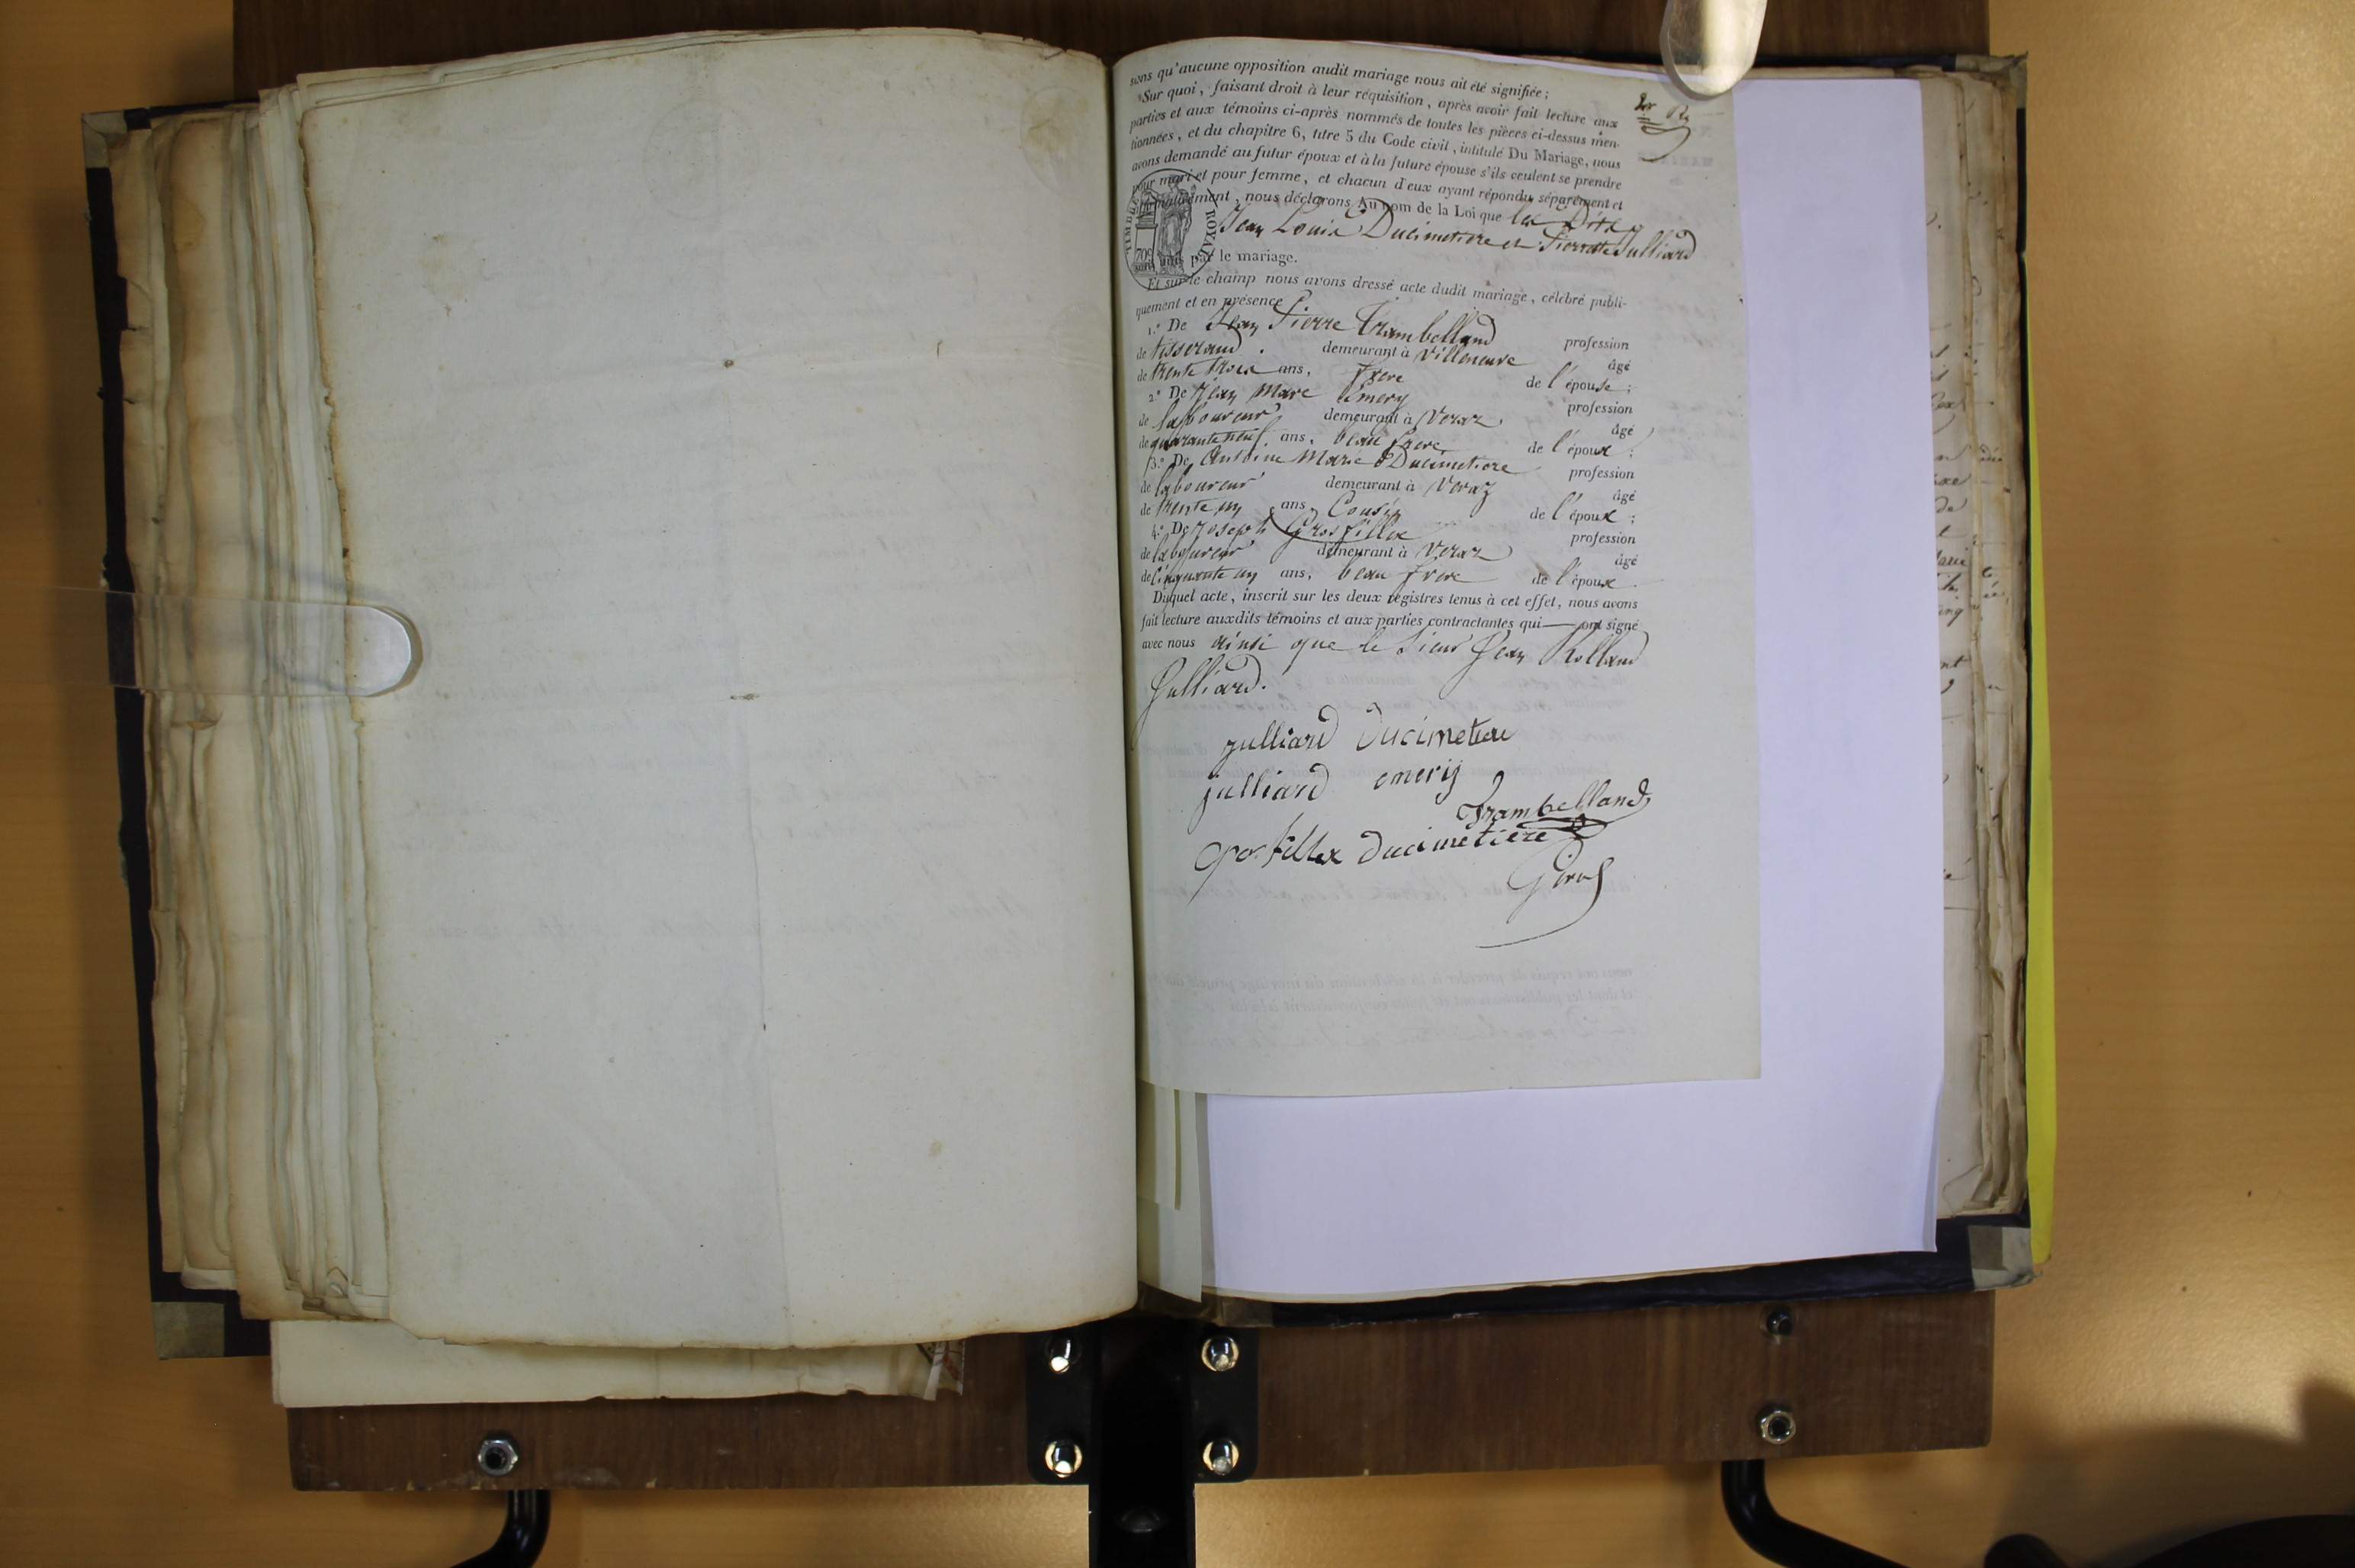 sions qu'aucune opposition audit mariage nous ait été signifiée ;
Sur quoi, faisant droit à leur réquisition, après avoir fait lecture aux
parties et aux témoins ci-après nommés de toutes les pièces ci-dessus men-
tionnées, et du chapitre 6, titre 5 du Code civil, intitulé Du Mariage, nous
avons demandé au futur époux et à la future épouse s'ils veulent se prendre
pour mari et pour femme, et chacun d'eux ayant répondu séparément et
affirmativement, nous déclarons Au nom de la Loi que les Dits
Jean Louis Ducimetiere et Pierrette Julliard
sont unis par le mariage.
TIMBRE ROYAL
70c
Et sur le champ nous avons dressé acte dudit mariage, célébré publi-
quement et en présence
1.° De Jean Pierre Trambelland profession
de tisserand . demeurant à Villeneuve âgé
de trente trois ans, frere de l'épouse ;
2.° De Jean Marc Emery profession
de laboureur demeurant à Veraz âgé
de quarante neuf ans, beau frere de l'époux ;
3.° De Antoine Marie Ducimetiere profession
de laboureur demeurant à Veraz âgé
de trente un ans, Cousin de l'époux ;
4.° De Joseph Grosfillex profession
de laboureur demeurant à Veraz âgé
de cinquante un ans, beau frere de l'époux .
Duquel acte, inscrit sur les deux registres tenus à cet effet, nous avons
fait lecture auxdits témoins et aux parties contractantes qui — ont signé
avec nous ainsi que le Sieur Jean Rolland
Julliard.
julliard Ducimetiere
julliard emery
Trambelland
Grosfillex ducimetiere
Girod